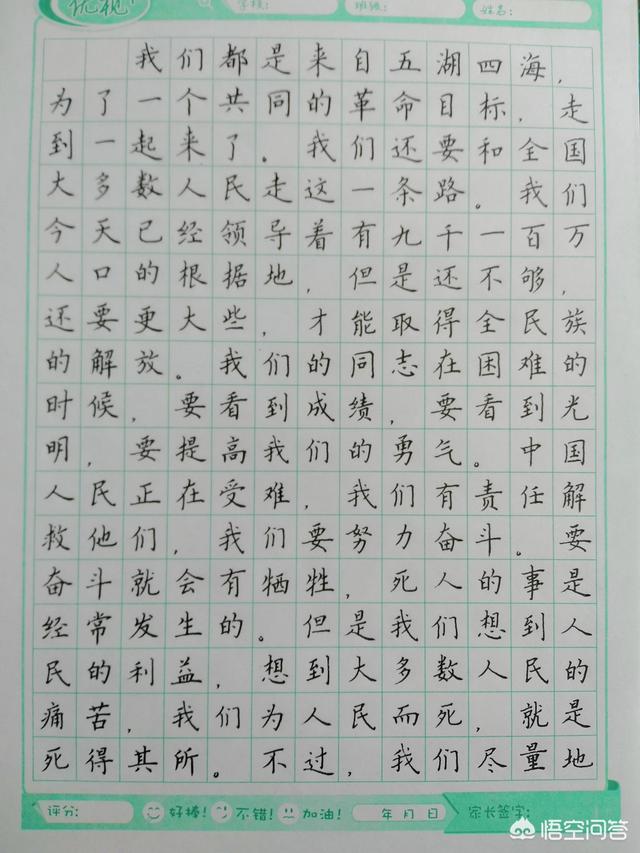 优视
学校:
班级:
姓名:
我们都是来自五湖四海，
为了一个共同的革命目标，走
到一起来了。我们还要和全国
大多数人民走这一条路。我们
今天已经领导着有九千一百万
人口的根据地，但是还不够，
还要更大些，才能取得全民族
的解放。我们的同志在困难的
时候，要看到成绩，要看到光
明，要提高我们的勇气。中国
人民正在受难，我们有责任解
救他们，我们要努力奋斗。要
奋斗就会有牺牲，死人的事是
经常发生的。但是我们想到人
民的利益，想到大多数人民的
痛苦，我们为人民而死，就是
死得其所。不过，我们尽量地
评分: 好棒! 不错! 加油! 年 月 日 家长签字:
悟空问答